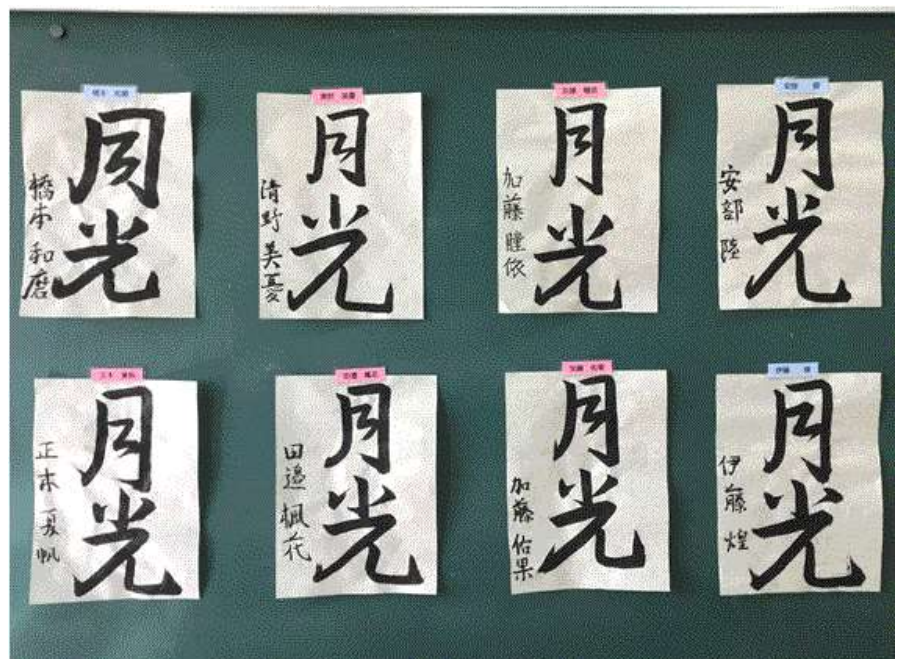 月光
橋本和磨
月光
清野美憂
月光
加藤瞳依
月光
安部陸
月光
正木夏帆
月光
田邉楓花
月光
加藤佑果
月光
伊藤煌